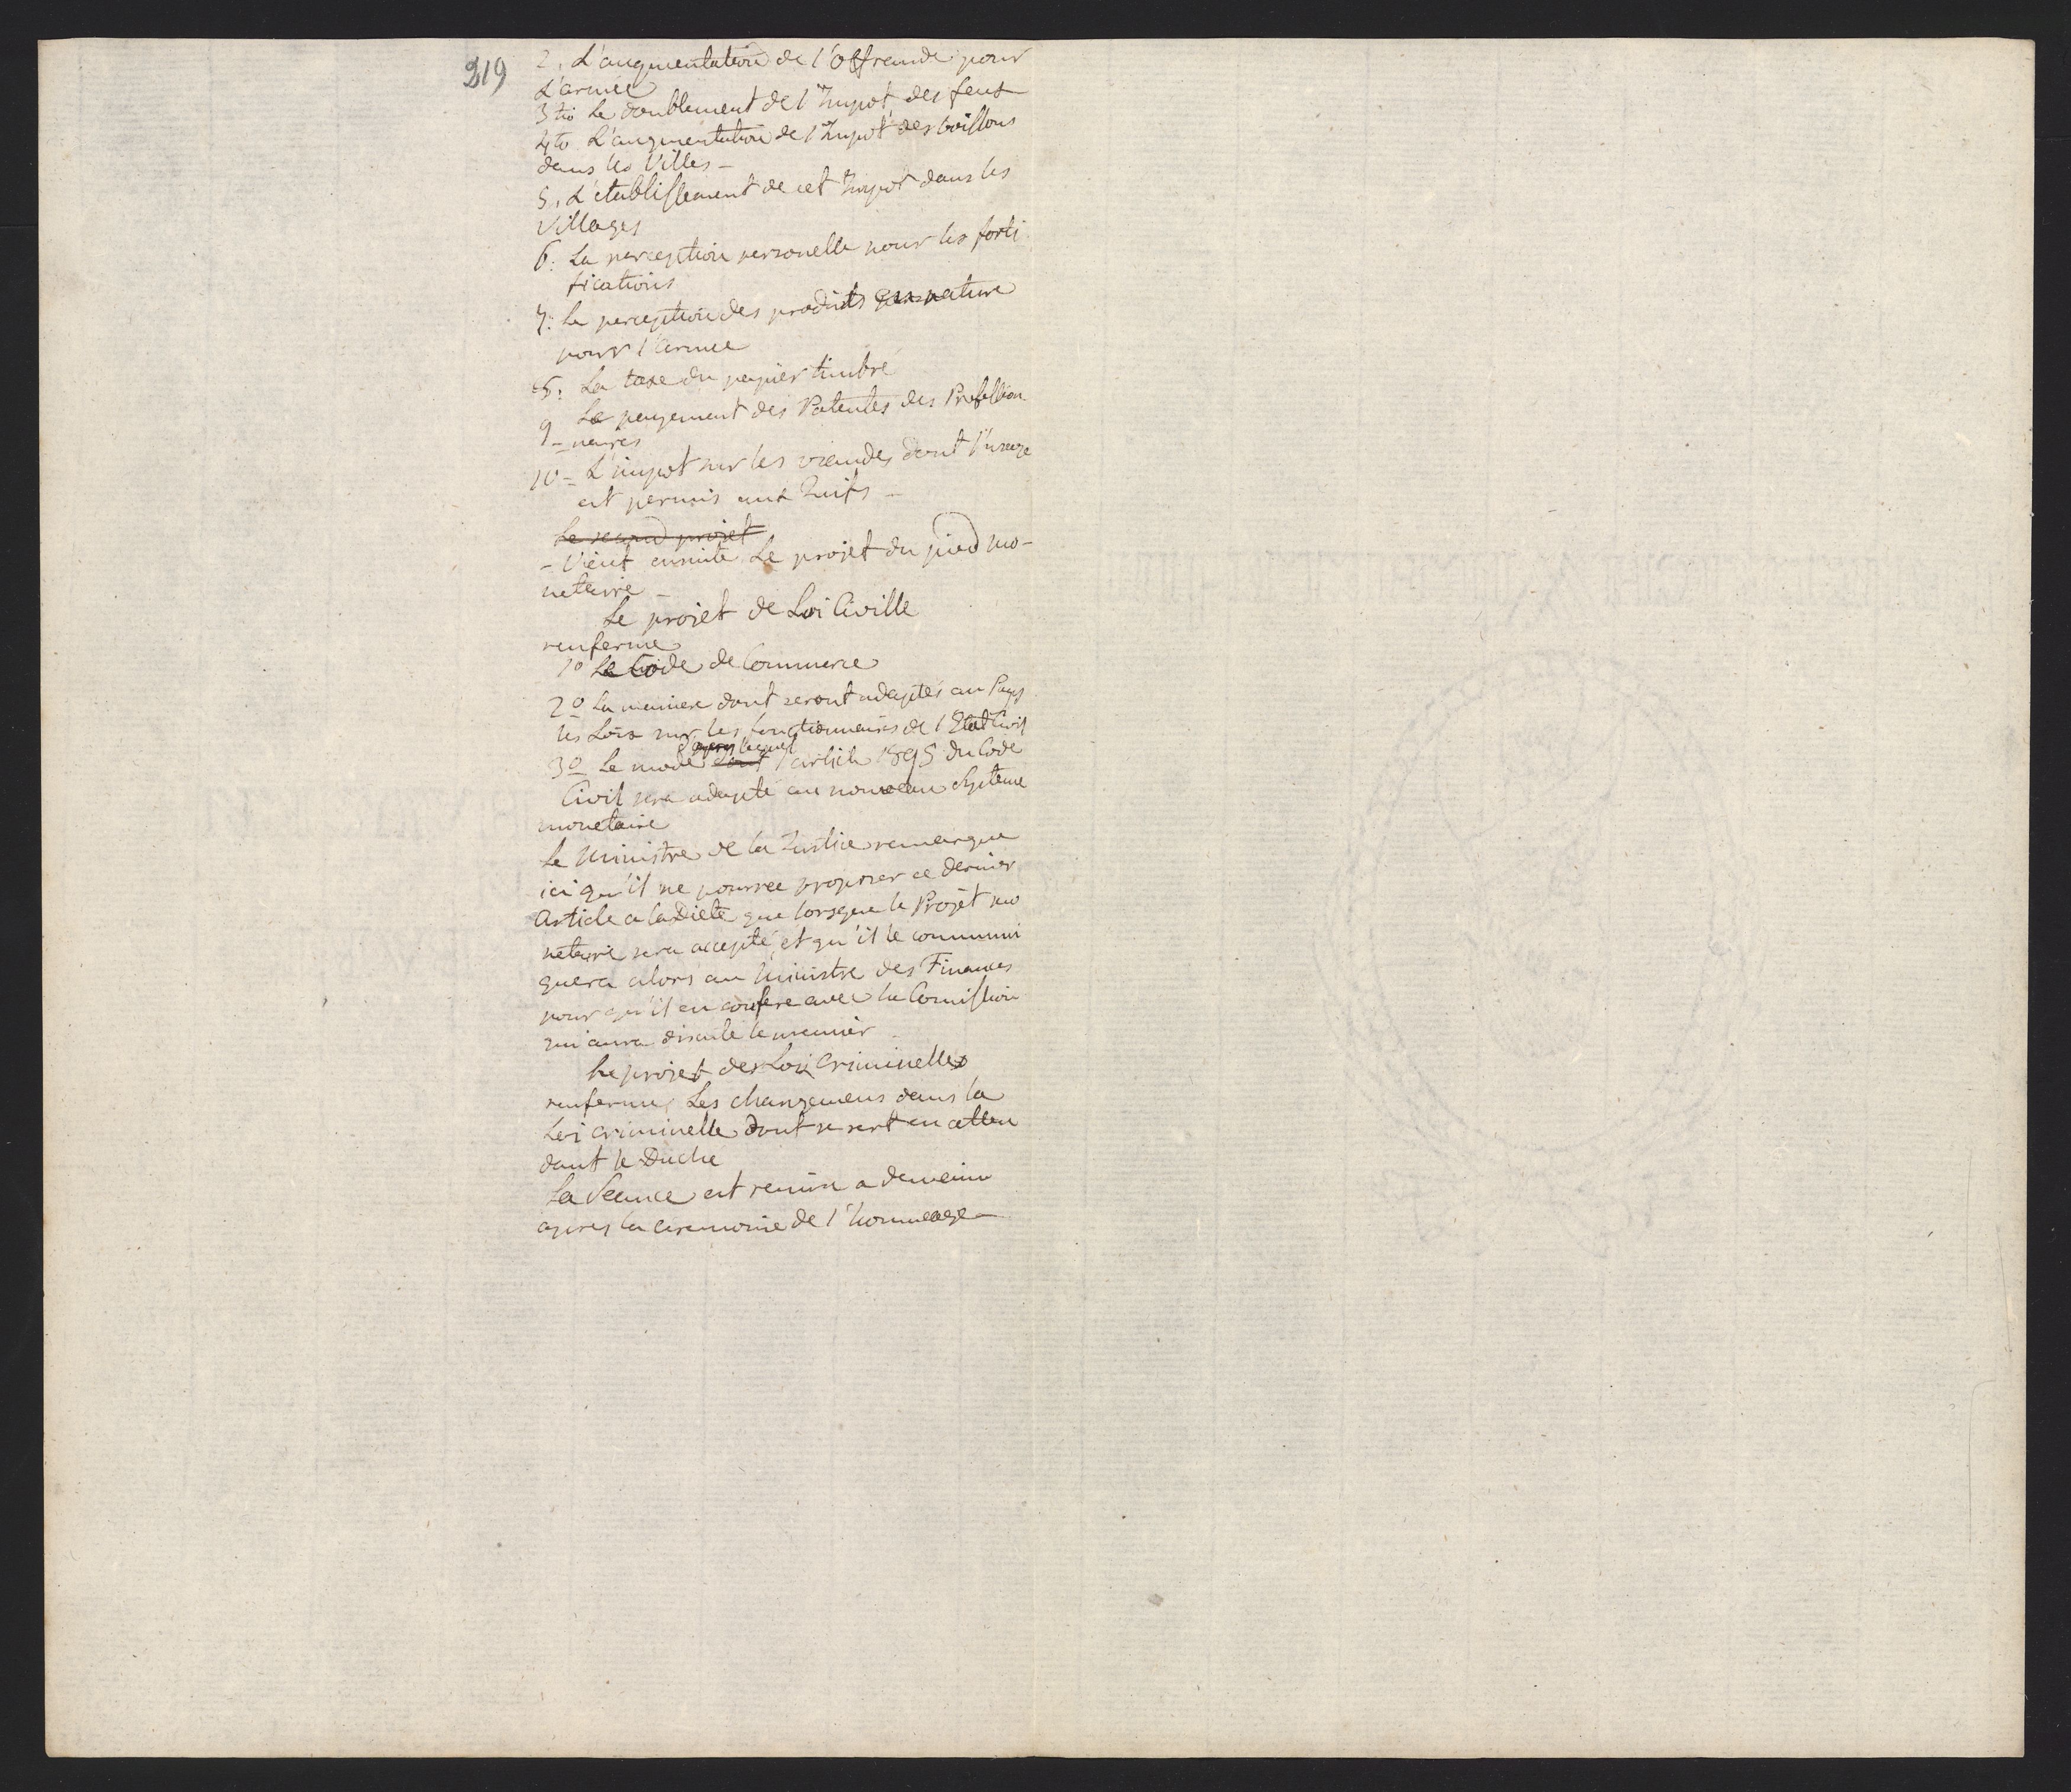 319
2. L'augmentation de l'Offrande pour
L'armée
3tio Le doublement de l'Impot des feux
4to L'augmentation de l'Impot des boissons
dans les Villes –
5. L'etablissement de cet Impot dans les
Villages
6. La perception personelle pour les forti
fications
7. La perception des produits en nature
pour l'armée
8. La taxe du papier timbré
9 Le payement des Patentes des Profession
– naires
10 – L'impot sur les viandes dont l'usage
est permis aux Juifs –
Le second projet
– Vient ensuite Le projet du pied mo-
netaire –
Le projet de Loi Civille
renferme
1o Le Code de Commerce
2o La maniere dont seront adaptés au Pays
les Loix sur les fonctionnaires de l'Etat Civil
après lequel
3o Le mode dont l'article 1895 du Code
Civil sera adapté au nouveau Systeme
monetaire
Le Ministre de la Justice remarque
ici qu'il ne pourra proposer ce dernier
Article a la Diete que lorsque le Projet mo
netaire sera accepté, et qu'il le communi
quera alors au Ministre des Finances
pour qu'il en confere avec la Comission
qui aura discuté le premier –
Le projet des Loix Criminelles
renferme Les changemens dans la
Loi criminelle dont se sert en atten
dant le Duché
La Seance est remise a demain
apres la ceremonie de l'hommage –